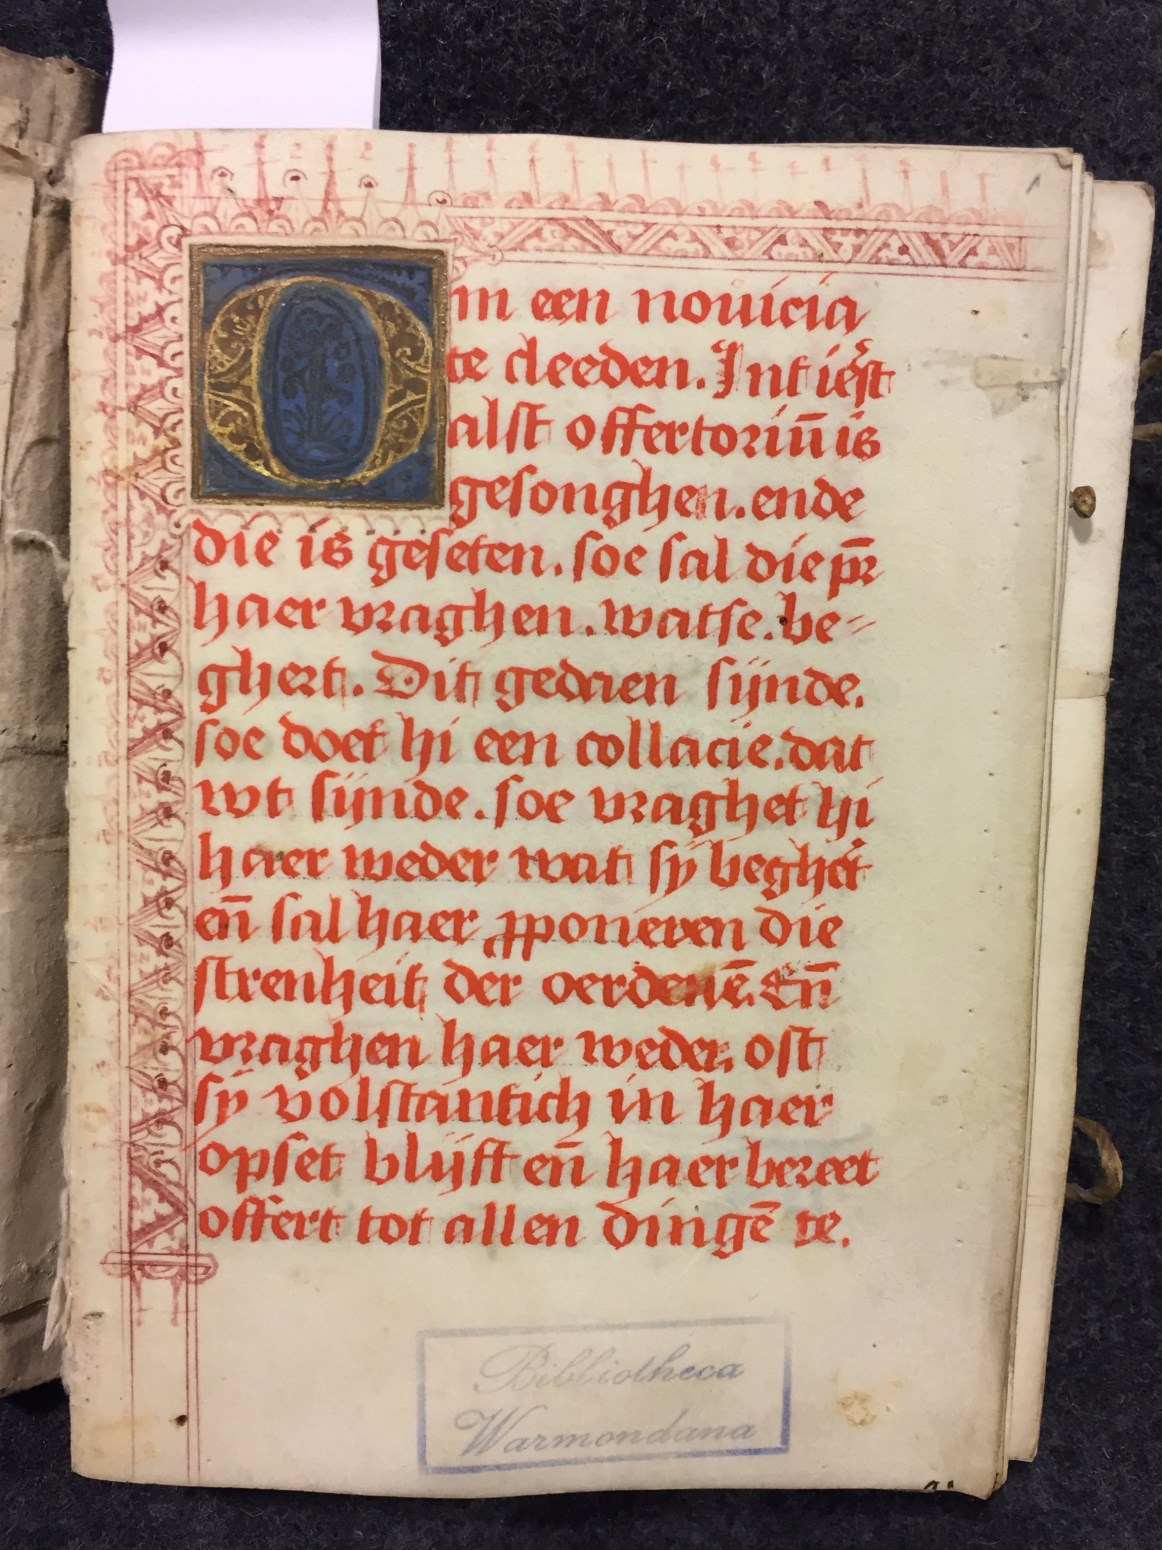 Om een nouicia
te cleeden. Int ierst
alst offertoriū is
gesonghen. ende
die is geseten. soe sal die pr̄
haer vraghen. watse. be⸗
ghert. Dit gedaen sijnde.
soe doet hi een collacie. dat
wt sijnde. soe vraghet hi
haer weder wat sy beghert
eñ sal haer ꝓponeren die
strenheit der oerdenē. Eñ
vraghen haer weder. ost
sy volstantich in haer
opset blijft eñ haer bereet
offert tot allen dingē te.
Bibliotheca
Warmondana